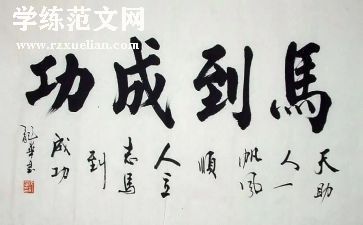 学练范文网
www.rzxuelian.com
馬到成功
天助
人一
帆風
順
人立
志馬
到
成功